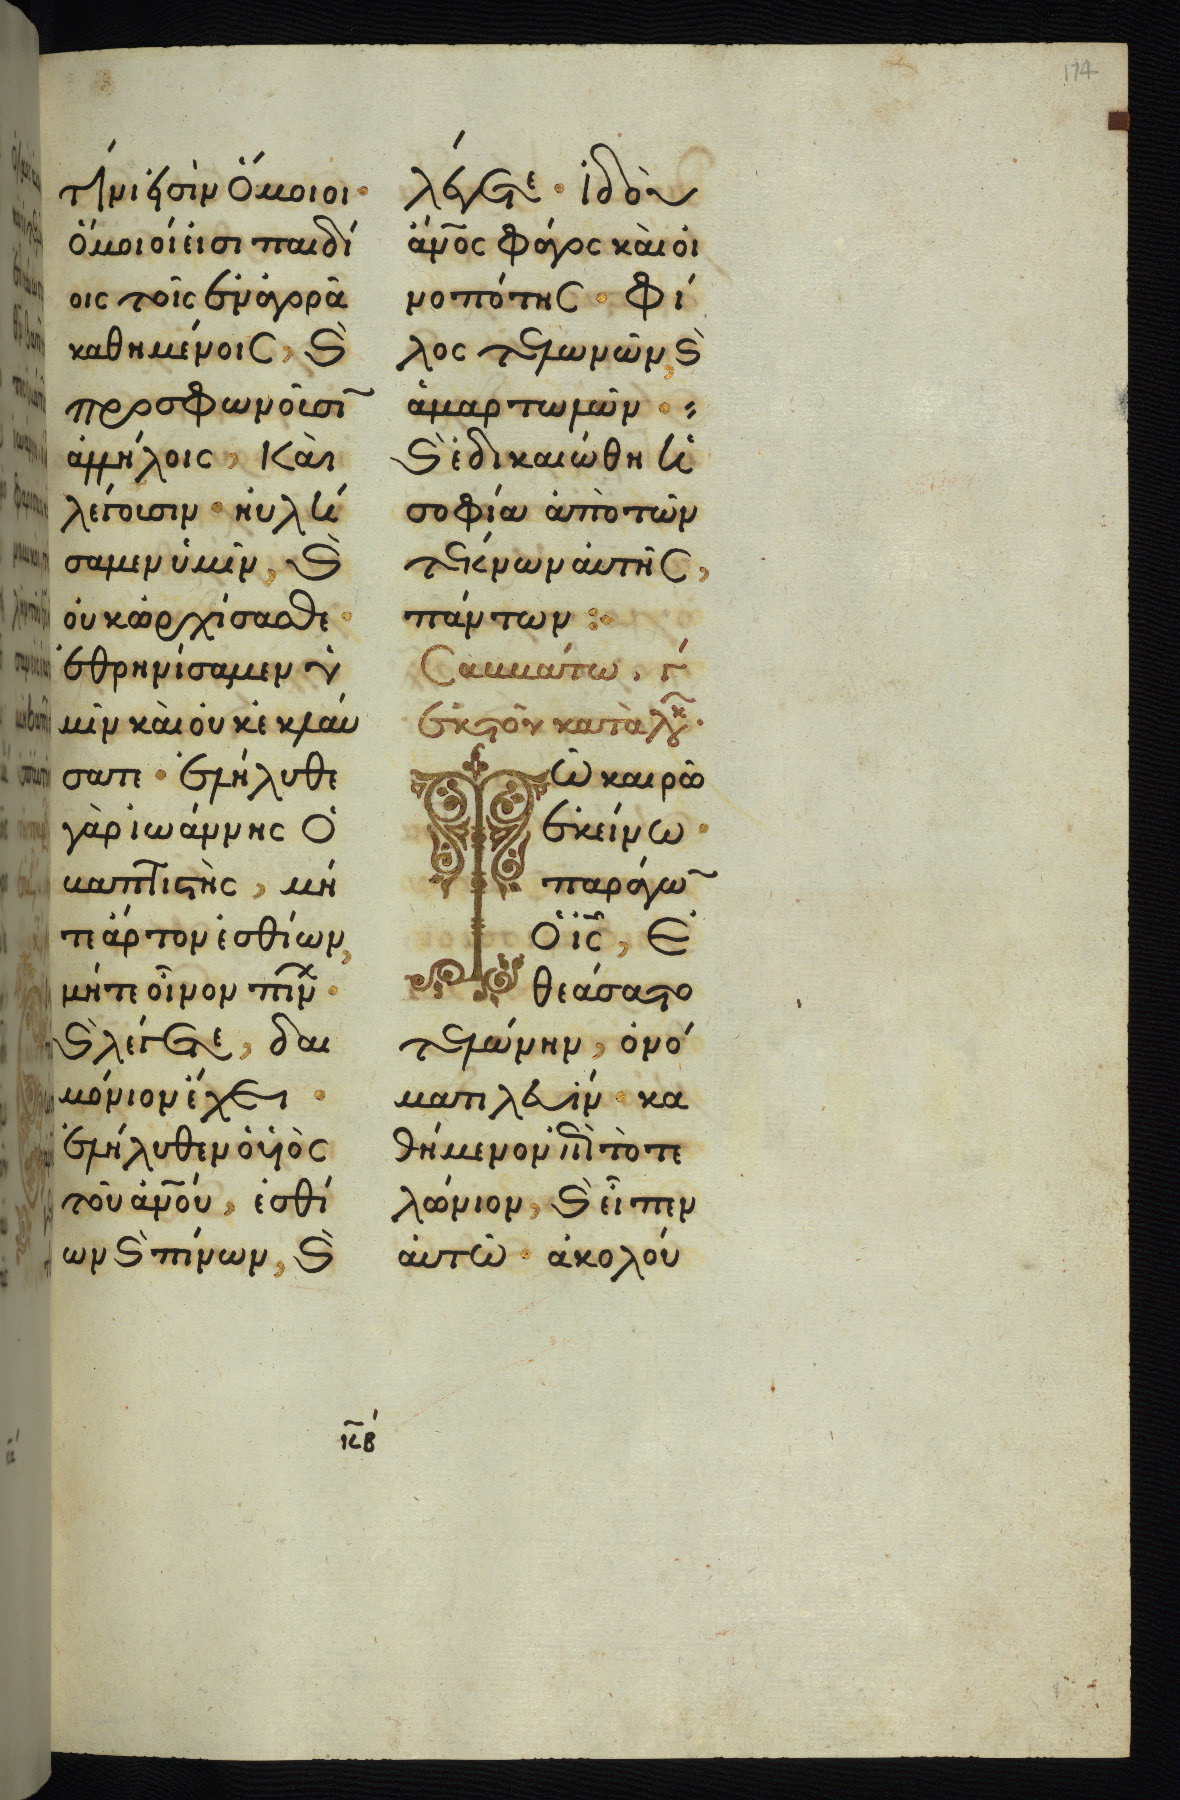 174
τίνι εἰσὶν ὅμοιοι·
ὅμοιοί εἰσι παιδί
οις τοῖς ἐν ἀγορᾶ
καθημένοις, ϗ
προσφωνοῦσῑ
ἀλλήλοις, Καὶ
λέγουσιν· ηὐλή
σαμεν ὑμῖν, ϗ
οὐκ ὠρχίσασθε·
ἐθρηνίσαμεν ὑ
μῖν καὶ οὐκ ἐκλαύ
σατε· ἐλήλυθε
γὰρ ἰωάννης ὁ
βαπτιστὴς, μή
τε ἄρτον ἐσθίων,
μήτε οἶνον πίν·
ϗ λέγετε, δαι
μόνιον ἔχει·
ἐλήλυθεν ὁ υἱὸς
τοῦ ἀν̅ου, ἐσθί
ων ϗ πίνων, ϗ
λέγετε· ἰδοὺ
ἄν̅ος φάγος καὶ οἰ
νοπότης· φί
λος τελωνῶν, ϗ
ἁμαρτωλῶν·
ϗ ἐδικαιώθη ἡ
σοφία ἀπὸ τῶν
τέκνων αὐτῆς,
πάντων:
Σαββάτω. γ
ἐκ τοῦ κατὰ λγκ·
Τῶ καιρῶ
ἐκείνω·
παράγω̅
ὁ ι̅ς, ἐ
θεάσατο
τελώνην, ὀνό
ματι λευίν· κα
θήμενον ἐπὶ τὸ τε
λώνιον, ϗ εἶπεν
αὐτῶ· ἀκολού
κβ